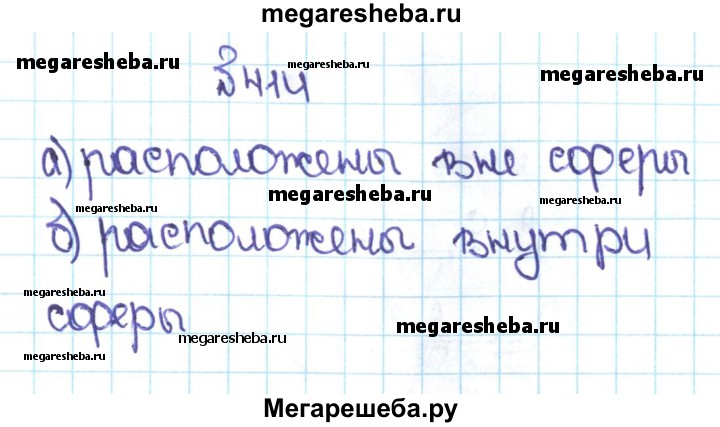 megaresheba.ru
megaresheba.ru
megaresheba.ru
megaresheba.ru
№414
а) расположены вне сферы
megaresheba.ru
megaresheba.ru
megaresheba.ru
б) расположены внутри
megaresheba.ru
сферы
megaresheba.ru
megaresheba.ru
megaresheba.ru
Мегарешеба.ру